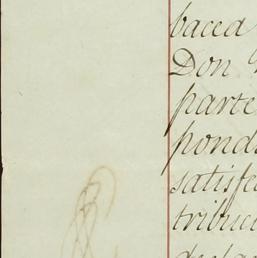 bacea
Don
parte
pond
satisfe
tribuci